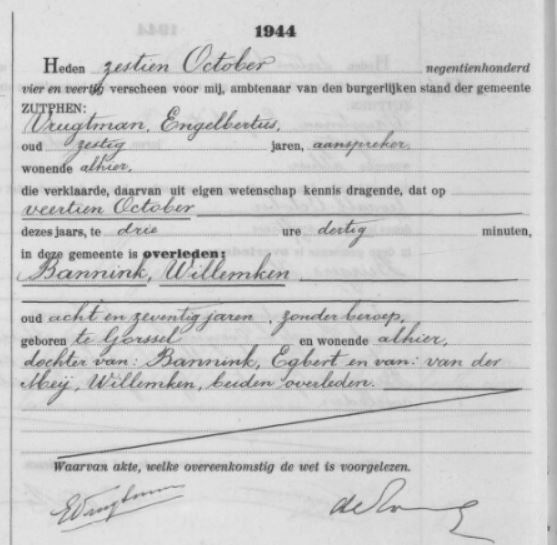 1944
Heden zestien October negentienhonderd
vier en veertig verscheen voor mij, ambtenaar van den burgerlijken stand der gemeente
ZUTPHEN:
Vrugtman, Engelbertus,
oud zestig jaren, aanspreker,
wonende alhier,
die verklaarde, daarvan uit eigen wetenschap kennis dragende, dat op
veertien October
dezes jaars, te drie ure dertig minuten,
in deze gemeente is overleden:
Bannink, Willemken
oud acht en zeventig jaren, zonder beroep,
geboren te Gorssel en wonende alhier,
dochter van: Bannink, Egbert en van: van der
Meij, Willemken, beiden overleden.
Waarvan akte, welke overeenkomstig de wet is voorgelezen.
EVrugtman